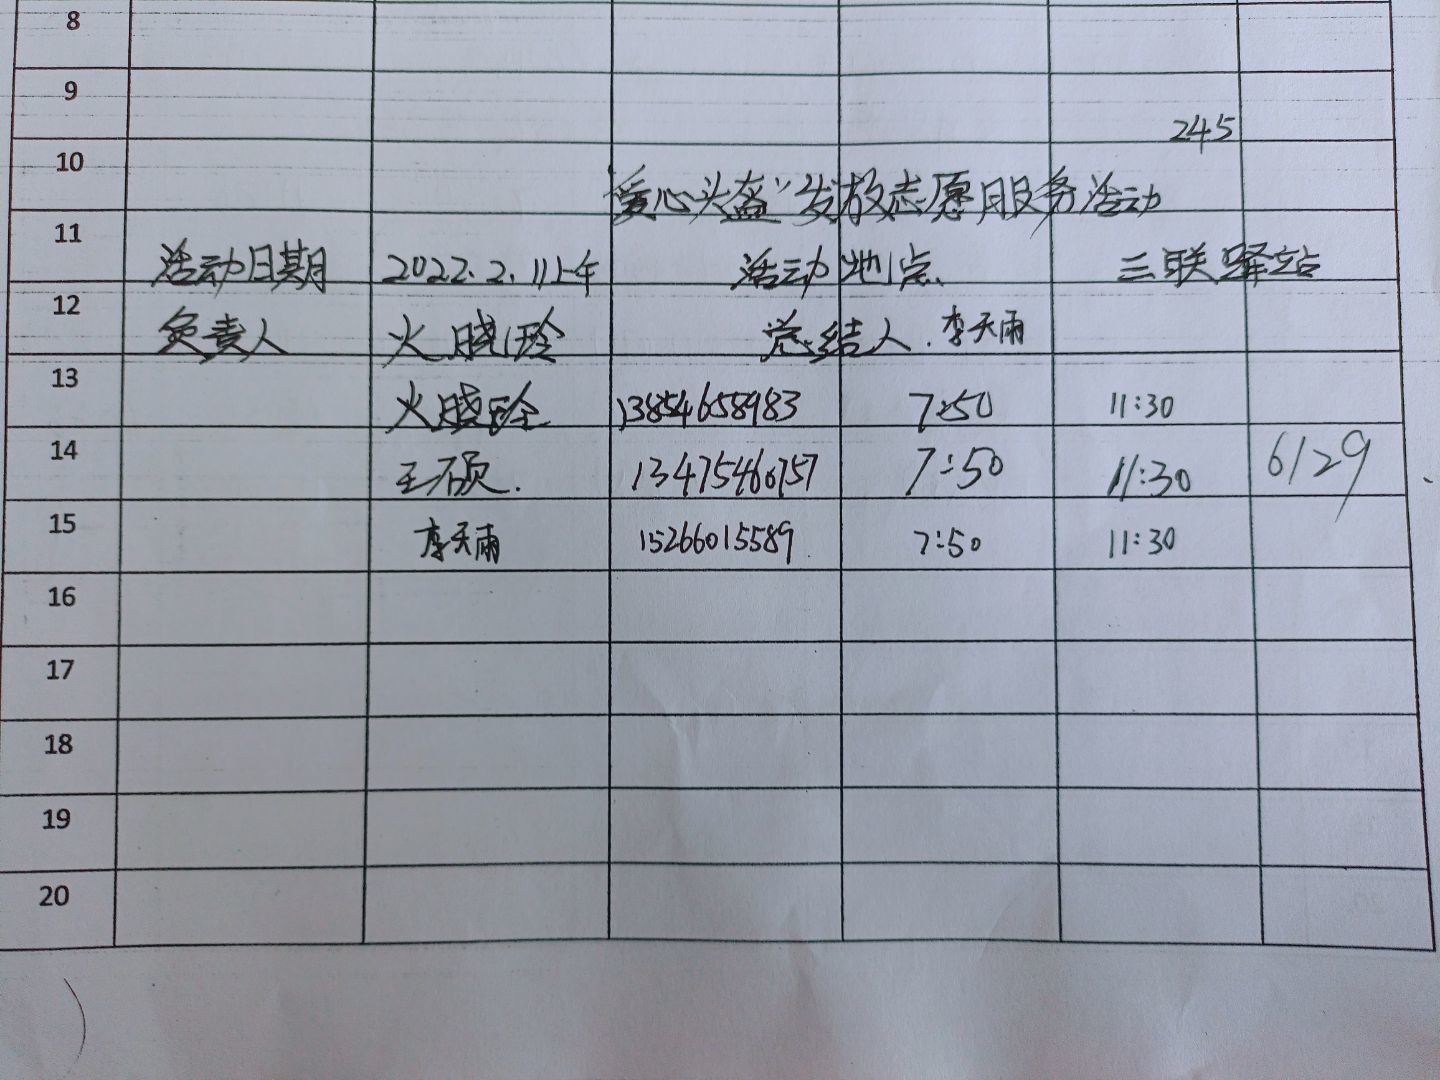 8
9
245
10
"爱心头盔"发放志愿服务活动
11 活动日期 2022.2.11上午 活动地点 三联驿站
12 负责人 火晓玲 总结人 李天雨
13 火晓玲 13854658983 7:50 11:30
14 王硕 13475460757 7:50 11:30 6129
15 李天雨 15266015589 7:50 11:30
16
17
18
19
20